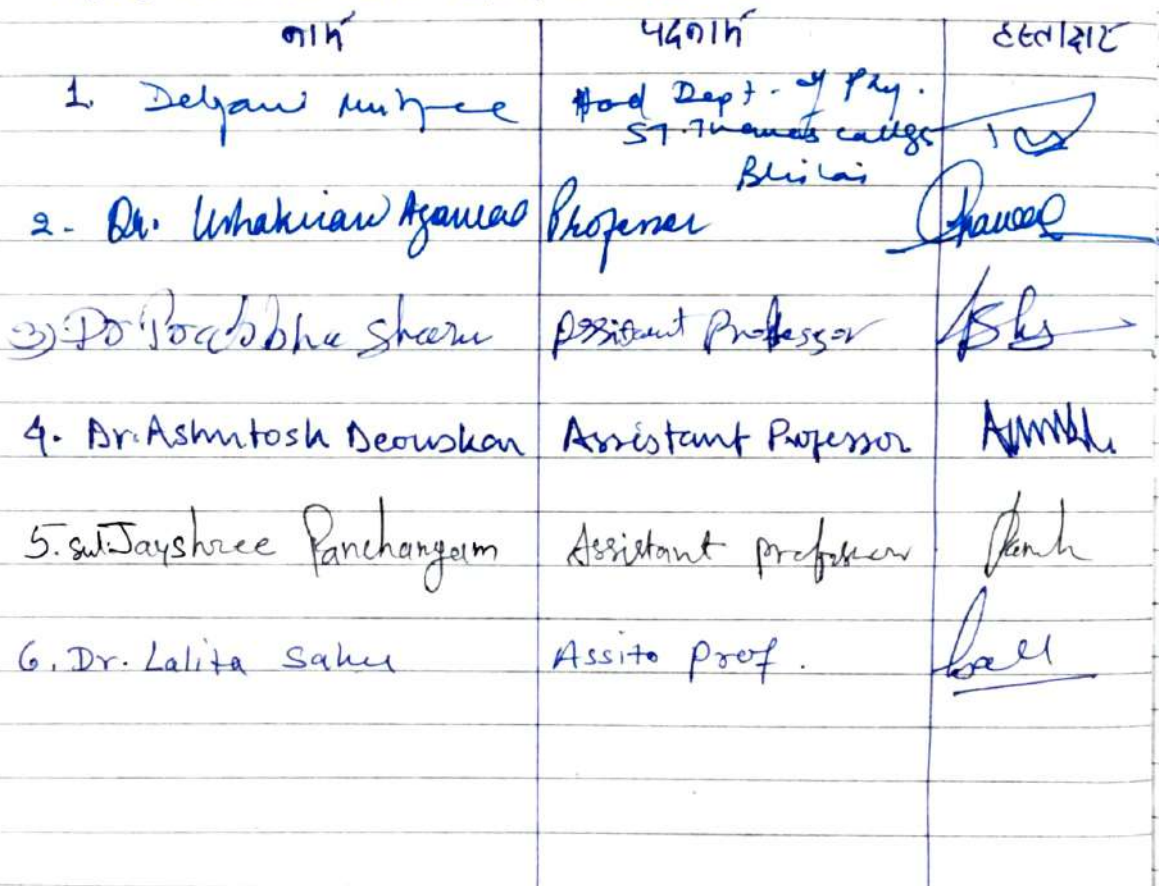 नाम पदनाम हस्ताक्षर
1. Debjani Mukherjee Hod Dept. of Phy.
ST. Thomas College
Bhilai
2- Dr. Ushakiran Agarwal Professor
3) Dr Pratibha Sharma Assistant Professor
4. Dr. Ashutosh Deouskar Assistant Professor
5. smt. Jayshree Panchangam Assistant professor
6. Dr. Lalita Sahu Assit. Prof.